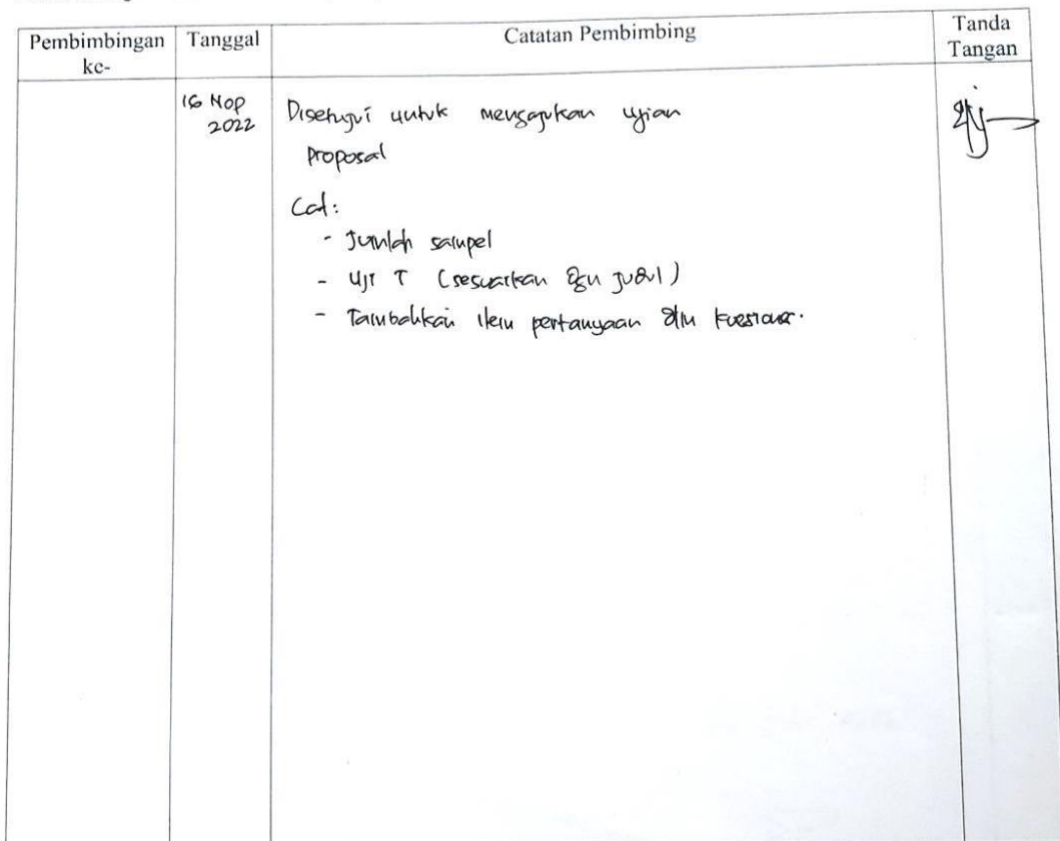 Pembimbingan ke-
Tanggal
Catatan Pembimbing
Tanda Tangan
16 Nop 2022
Disetujui untuk mengajukan ujian
proposal
Cat:
- Jumlah sampel
- Uji T (sesuaikan dgn judul)
- Tambahkan item pertanyaan dlm kuesioner.